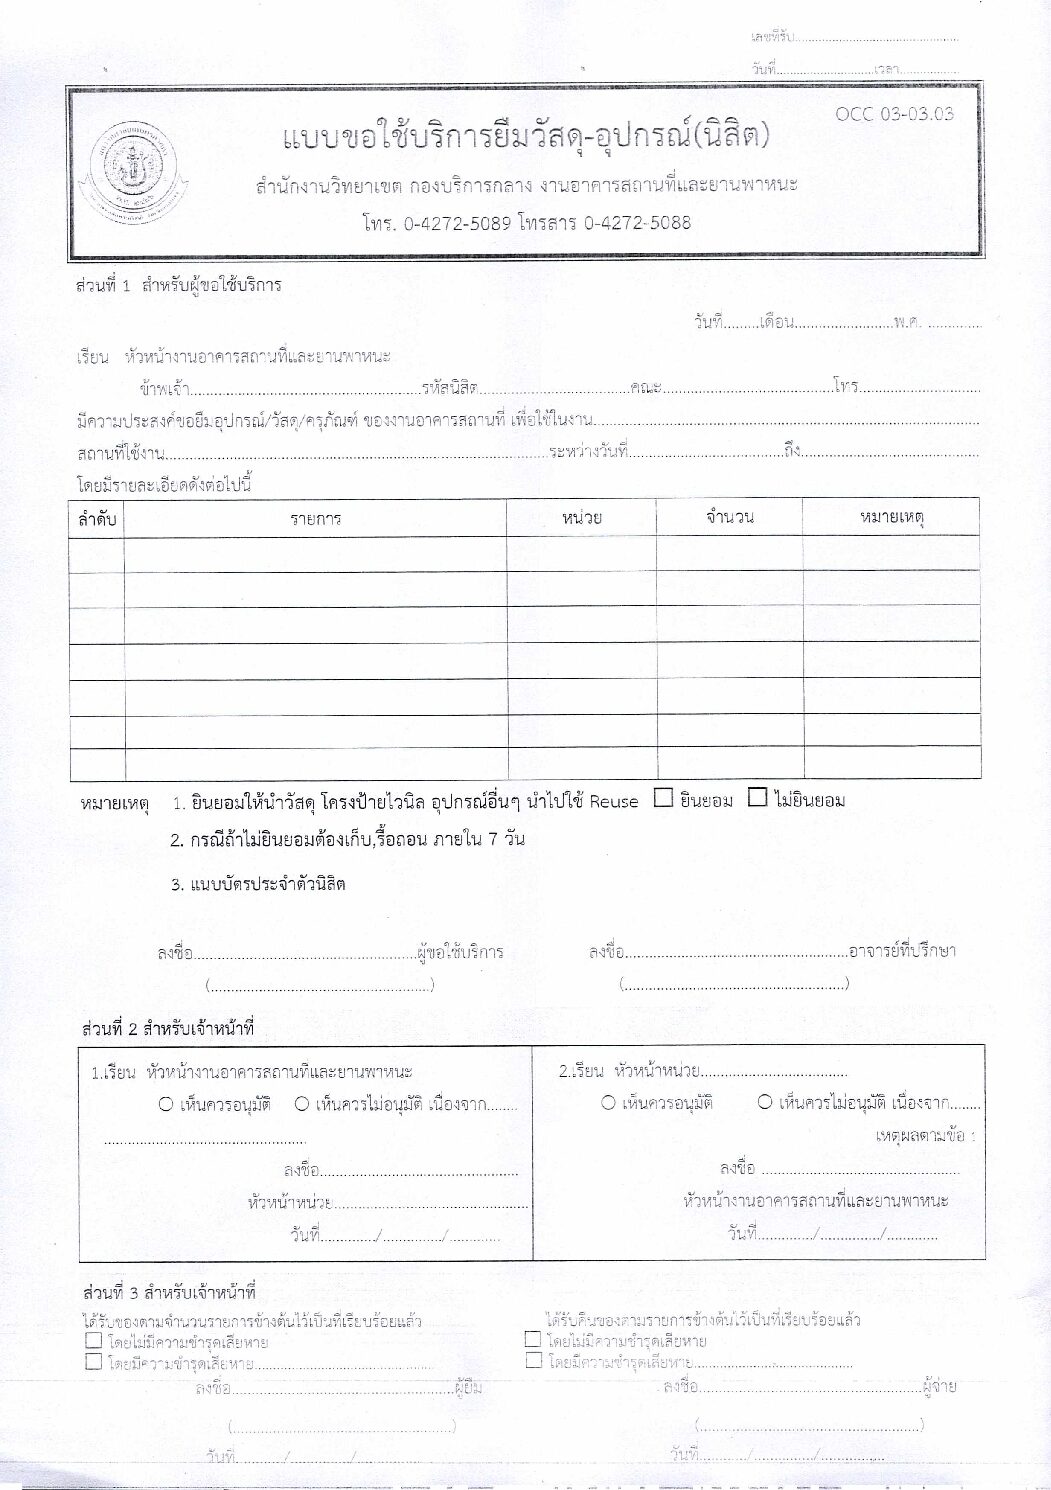 เลขที่รับ..............................................
วันที่............................เวลา.................
OCC 03-03.03
แบบขอใช้บริการยืมวัสดุ-อุปกรณ์(นิสิต)
สำนักงานวิทยาเขต กองบริการกลาง งานอาคารสถานที่และยานพาหนะ
โทร. 0-4272-5089 โทรสาร 0-4272-5088
ส่วนที่ 1 สำหรับผู้ขอใช้บริการ
วันที่.........เดือน.........................พ.ศ. .............
เรียน หัวหน้างานอาคารสถานที่และยานพาหนะ
ข้าพเจ้า..........................................................รหัสนิสิต......................................คณะ...........................................โทร..............................
มีความประสงค์ขอยืมอุปกรณ์/วัสดุ/ครุภัณฑ์ ของงานอาคารสถานที่ เพื่อใช้ในงาน.................................................................................................
สถานที่ใช้งาน................................................................................................ระหว่างวันที่.......................................ถึง.............................................
โดยมีรายละเอียดดังต่อไปนี้
ลำดับ รายการ หน่วย จำนวน หมายเหตุ
หมายเหตุ 1. ยินยอมให้นำวัสดุ โครงป้ายไวนิล อุปกรณ์อื่นๆ นำไปใช้ Reuse ☐ ยินยอม ☐ ไม่ยินยอม
2. กรณีถ้าไม่ยินยอมต้องเก็บ,รื้อถอน ภายใน 7 วัน
3. แนบบัตรประจำตัวนิสิต
ลงชื่อ........................................................ผู้ขอใช้บริการ ลงชื่อ........................................................อาจารย์ที่ปรึกษา
(.......................................................) (.......................................................)
ส่วนที่ 2 สำหรับเจ้าหน้าที่
1.เรียน หัวหน้างานอาคารสถานที่และยานพาหนะ 2.เรียน หัวหน้าหน่วย.....................................
○ เห็นควรอนุมัติ ○ เห็นควรไม่อนุมัติ เนื่องจาก........ ○ เห็นควรอนุมัติ ○ เห็นควรไม่อนุมัติ เนื่องจาก........
................................................... เหตุผลตามข้อ :
ลงชื่อ.................................................. ลงชื่อ ..................................................
หัวหน้าหน่วย................................................. หัวหน้างานอาคารสถานที่และยานพาหนะ
วันที่............./.............../............. วันที่............./.............../.............
ส่วนที่ 3 สำหรับเจ้าหน้าที่
ได้รับของตามจำนวนรายการข้างต้นไว้เป็นที่เรียบร้อยแล้ว ได้รับคืนของตามรายการข้างต้นไว้เป็นที่เรียบร้อยแล้ว
☐ โดยไม่มีความชำรุดเสียหาย ☐ โดยไม่มีความชำรุดเสียหาย
☐ โดยมีความชำรุดเสียหาย............................................. ☐ โดยมีความชำรุดเสียหาย........................................
ลงชื่อ........................................................ผู้ยืม ลงชื่อ........................................................ผู้จ่าย
(........................................................) (........................................................)
วันที่............/.............../................ วันที่............/.............../................